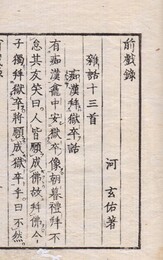 前戲錄
河玄佑著
雜話十三首
痴漢拜獄卒話
有痴漢龕中安獄卒像朝暮禮拜不
怠其友笑曰人皆願成佛故拜佛今
子獨拜獄卒將願成獄卒乎曰不然